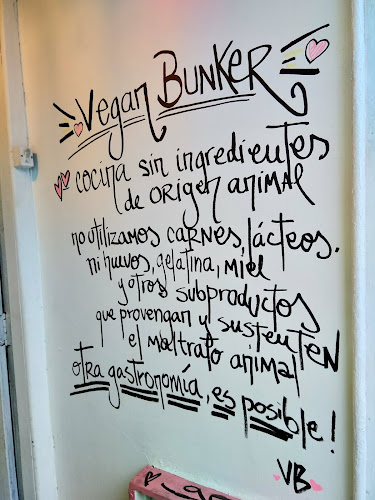 Vegan BUNKER
cocina sin ingredientes
de origen animal
no utilizamos carnes, lácteos.
ni huevos, gelatina, miel
y otros subproductos
que provengan y sustenten
el maltrato animal
otra gastronomía, es posible!
VB